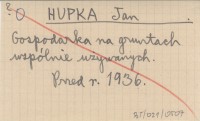 ? O HUPKA Jan.
Gospodarka na gruntach
wspólnie używanych.
Przed r. 1936.